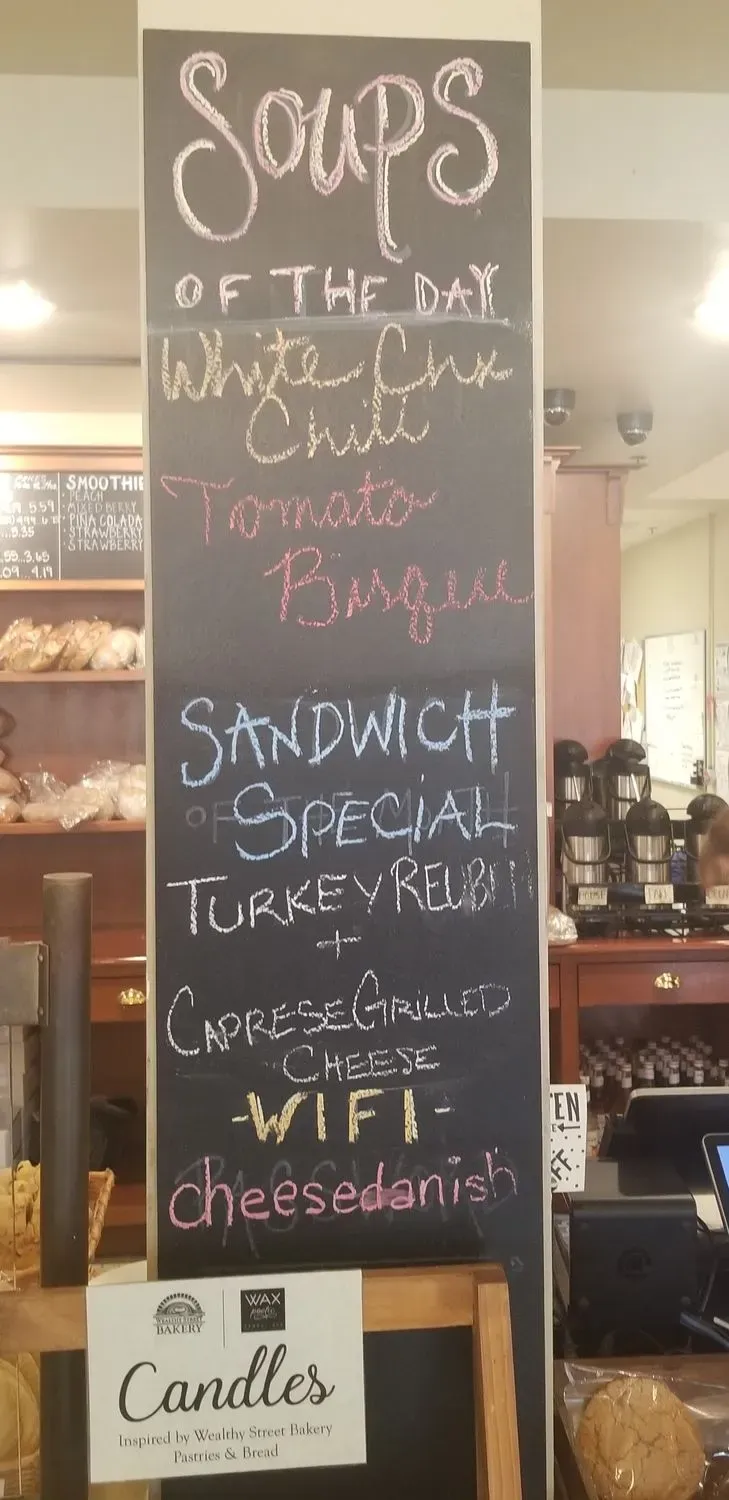 Soups
OF THE DAY
White Cnx
Chili
Tomato
Bisque
SANDWICH
SPECIAL
TURKEY REUBIN
+
CAPRESE GRILLED
CHEESE
-WIFI-
cheesedanish
SMOOTHIE
· PEACH
· MIXED BERRY
· PIÑA COLADA
· STRAWBERRY
· STRAWBERRY
5.59
5.35
.55...3.65
.09...4.19
WEALTHY STREET
BAKERY
WAX
poetic
Candles
Inspired by Wealthy Street Bakery
Pastries & Bread